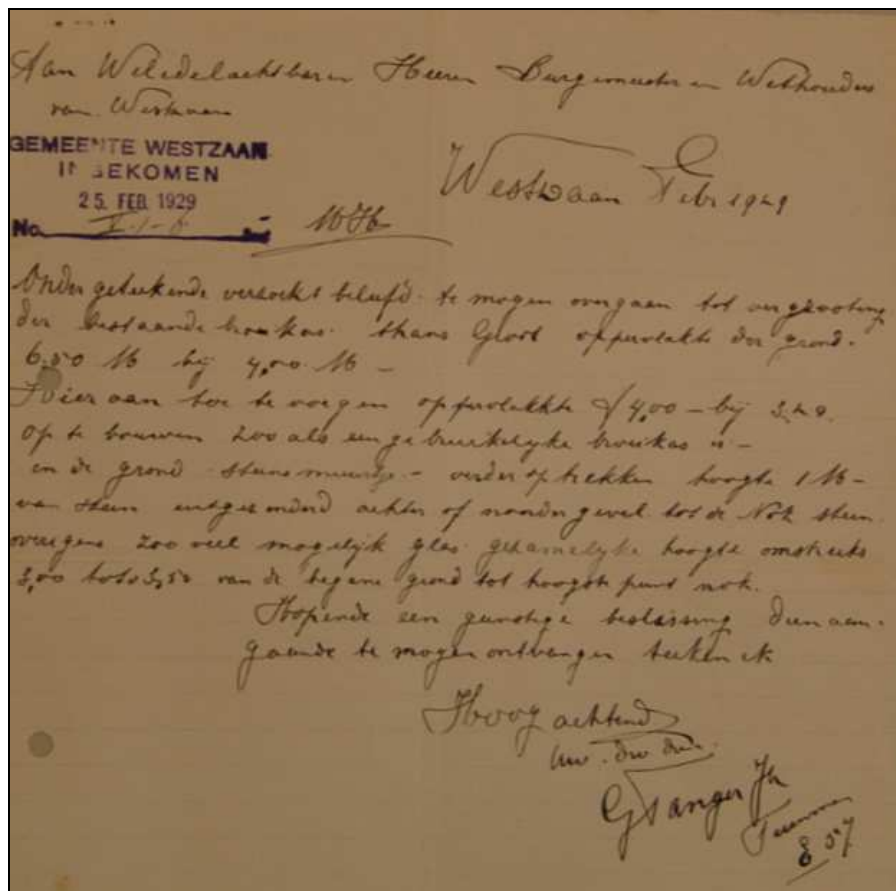 Aan Weledelachtbaren Heeren Burgemeester en Wethouders
van Westzaan
GEMEENTE WESTZAAN
INGEKOMEN
25. FEB. 1929
No.
Westzaan Febr 1929
M H
Ondergeteekende verzoekt beleefd te mogen overgaan tot vergrooting
der bestaande broeikas thans Groot oppervlakte der grond.
6.50 M bij 4,00 M -
Hier aan toe te voegen oppervlakkte 4,00 - bij
op te bouwen zoo als een gebruikelyke broeikas is -
in de grond steens muurtje - verder optrekken hoogte 1 M -
van steen uitgezonderd achter of noordergevel tot de Nok steen
overigens zoo veel mogelijk glas gezamelyke hoogte omstreeks
3,00 tot 3,50 van de begane grond tot hoogste punt nok.
Hopende een gunstige beslissing dien aan-
gaande te mogen ontvangen teeken ik
Hoog achtend
Uw. dw dn.
G Tanger Jz
857